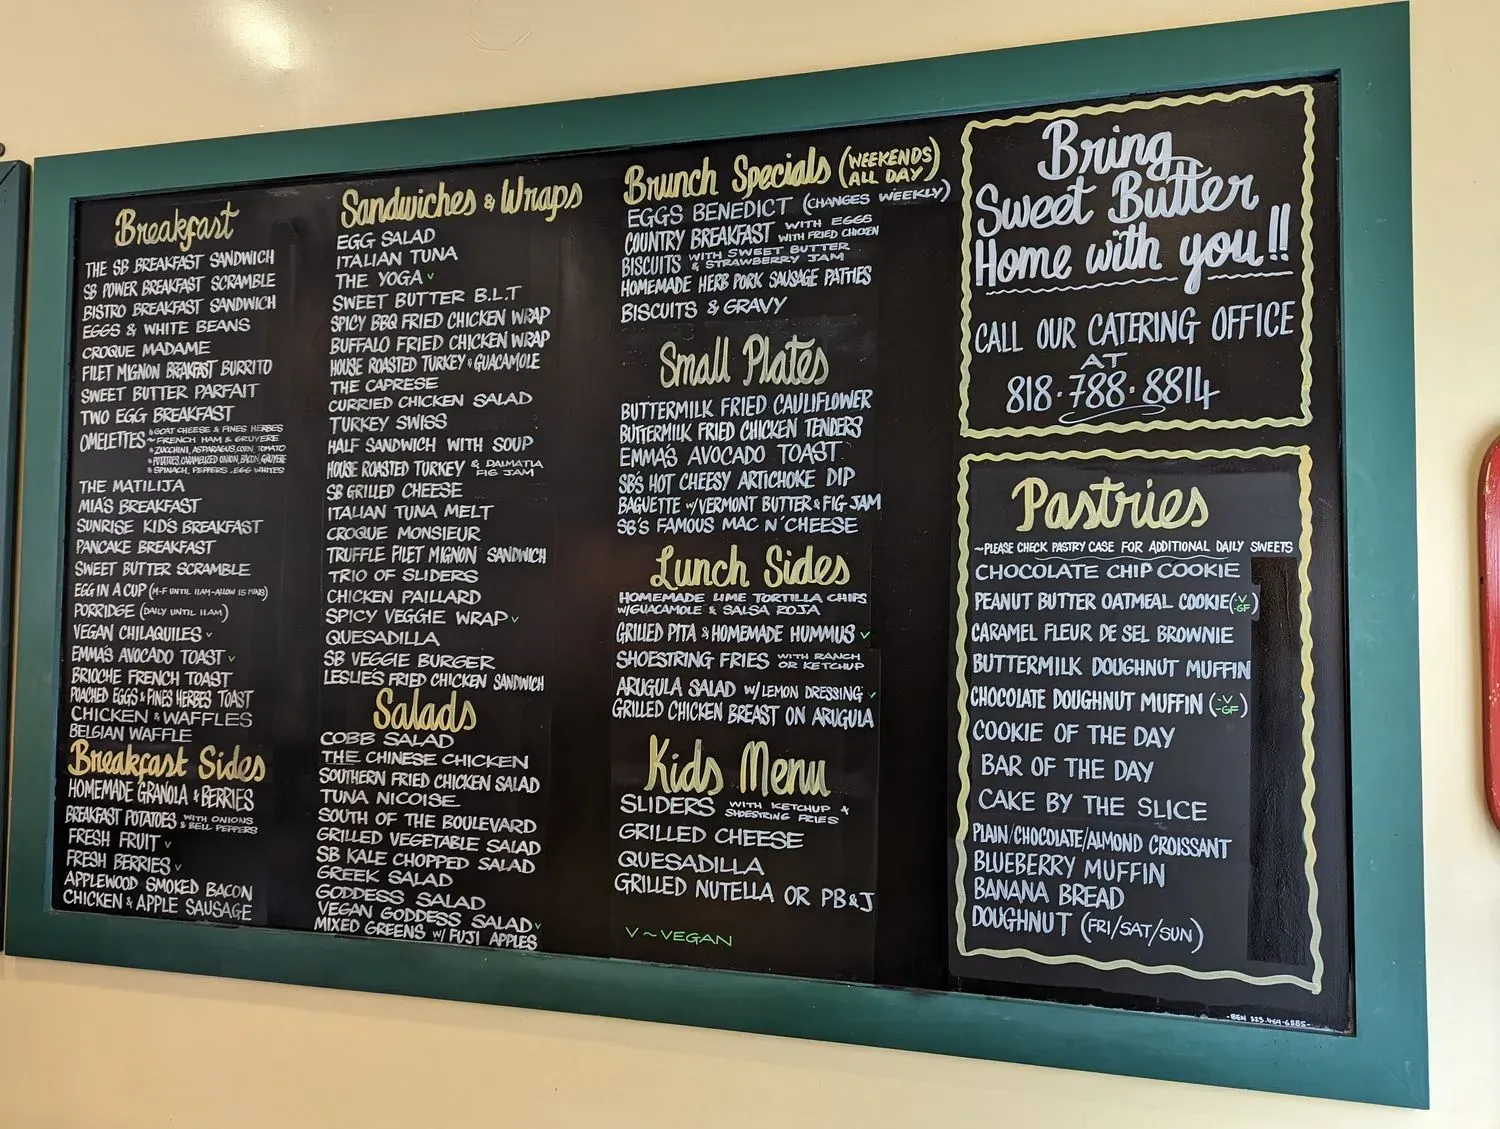 Breakfast
THE SB BREAKFAST SANDWICH
SB POWER BREAKFAST SCRAMBLE
BISTRO BREAKFAST SANDWICH
EGGS & WHITE BEANS
CROQUE MADAME
FILET MIGNON BREAKFAST BURRITO
SWEET BUTTER PARFAIT
TWO EGG BREAKFAST
OMELETTES • GOAT CHEESE & FINES HERBES
~ FRENCH HAM & GRUYERE
• ZUCCHINI, ASPARAGUS, CORN, TOMATO
• POTATOES, CARAMELIZED ONION, BACON, GRUYERE
• SPINACH, PEPPERS, EGG WHITES
THE MATILIJA
MIA'S BREAKFAST
SUNRISE KID'S BREAKFAST
PANCAKE BREAKFAST
SWEET BUTTER SCRAMBLE
EGG IN A CUP (M-F UNTIL 11AM-ALLOW 15 MINS)
PORRIDGE (DAILY UNTIL 11AM)
VEGAN CHILAQUILES V
EMMA'S AVOCADO TOAST V
BRIOCHE FRENCH TOAST
POACHED EGGS & FINES HERBES TOAST
CHICKEN & WAFFLES
BELGIAN WAFFLE
Breakfast Sides
HOMEMADE GRANOLA & BERRIES
BREAKFAST POTATOES WITH ONIONS
& BELL PEPPERS
FRESH FRUIT V
FRESH BERRIES V
APPLEWOOD SMOKED BACON
CHICKEN & APPLE SAUSAGE
Sandwiches & Wraps
EGG SALAD
ITALIAN TUNA
THE YOGA V
SWEET BUTTER B.L.T
SPICY BBQ FRIED CHICKEN WRAP
BUFFALO FRIED CHICKEN WRAP
HOUSE ROASTED TURKEY & GUACAMOLE
THE CAPRESE
CURRIED CHICKEN SALAD
TURKEY SWISS
HALF SANDWICH WITH SOUP
HOUSE ROASTED TURKEY & DALMATIA
FIG JAM
SB GRILLED CHEESE
ITALIAN TUNA MELT
CROQUE MONSIEUR
TRUFFLE FILET MIGNON SANDWICH
TRIO OF SLIDERS
CHICKEN PAILLARD
SPICY VEGGIE WRAP V
QUESADILLA
SB VEGGIE BURGER
LESLIE'S FRIED CHICKEN SANDWICH
Salads
COBB SALAD
THE CHINESE CHICKEN
SOUTHERN FRIED CHICKEN SALAD
TUNA NICOISE
SOUTH OF THE BOULEVARD
GRILLED VEGETABLE SALAD
SB KALE CHOPPED SALAD
GREEK SALAD
GODDESS SALAD
VEGAN GODDESS SALAD V
MIXED GREENS W/ FUJI APPLES
Brunch Specials (WEEKENDS
ALL DAY)
EGGS BENEDICT (CHANGES WEEKLY)
COUNTRY BREAKFAST WITH EGGS
WITH FRIED CHICKEN
BISCUITS WITH SWEET BUTTER
& STRAWBERRY JAM
HOMEMADE HERB PORK SAUSAGE PATTIES
BISCUITS & GRAVY
Small Plates
BUTTERMILK FRIED CAULIFLOWER
BUTTERMILK FRIED CHICKEN TENDERS
EMMA'S AVOCADO TOAST
SB'S HOT CHEESY ARTICHOKE DIP
BAGUETTE W/VERMONT BUTTER & FIG JAM
SB'S FAMOUS MAC N' CHEESE
Lunch Sides
HOMEMADE LIME TORTILLA CHIPS
W/GUACAMOLE & SALSA ROJA
GRILLED PITA & HOMEMADE HUMMUS V
SHOESTRING FRIES WITH RANCH
OR KETCHUP
ARUGULA SALAD W/LEMON DRESSING V
GRILLED CHICKEN BREAST ON ARUGULA
Kids Menu
SLIDERS WITH KETCHUP +
SHOESTRING FRIES
GRILLED CHEESE
QUESADILLA
GRILLED NUTELLA OR PB&J
V ~ VEGAN
Bring
Sweet Butter
Home with you!!
CALL OUR CATERING OFFICE
AT
818·788·8814
Pastries
~PLEASE CHECK PASTRY CASE FOR ADDITIONAL DAILY SWEETS
CHOCOLATE CHIP COOKIE
PEANUT BUTTER OATMEAL COOKIE (-V
-GF)
CARAMEL FLEUR DE SEL BROWNIE
BUTTERMILK DOUGHNUT MUFFIN
CHOCOLATE DOUGHNUT MUFFIN (-V
-GF)
COOKIE OF THE DAY
BAR OF THE DAY
CAKE BY THE SLICE
PLAIN/CHOCOLATE/ALMOND CROISSANT
BLUEBERRY MUFFIN
BANANA BREAD
DOUGHNUT (FRI/SAT/SUN)
-BEN 323.469.6885-